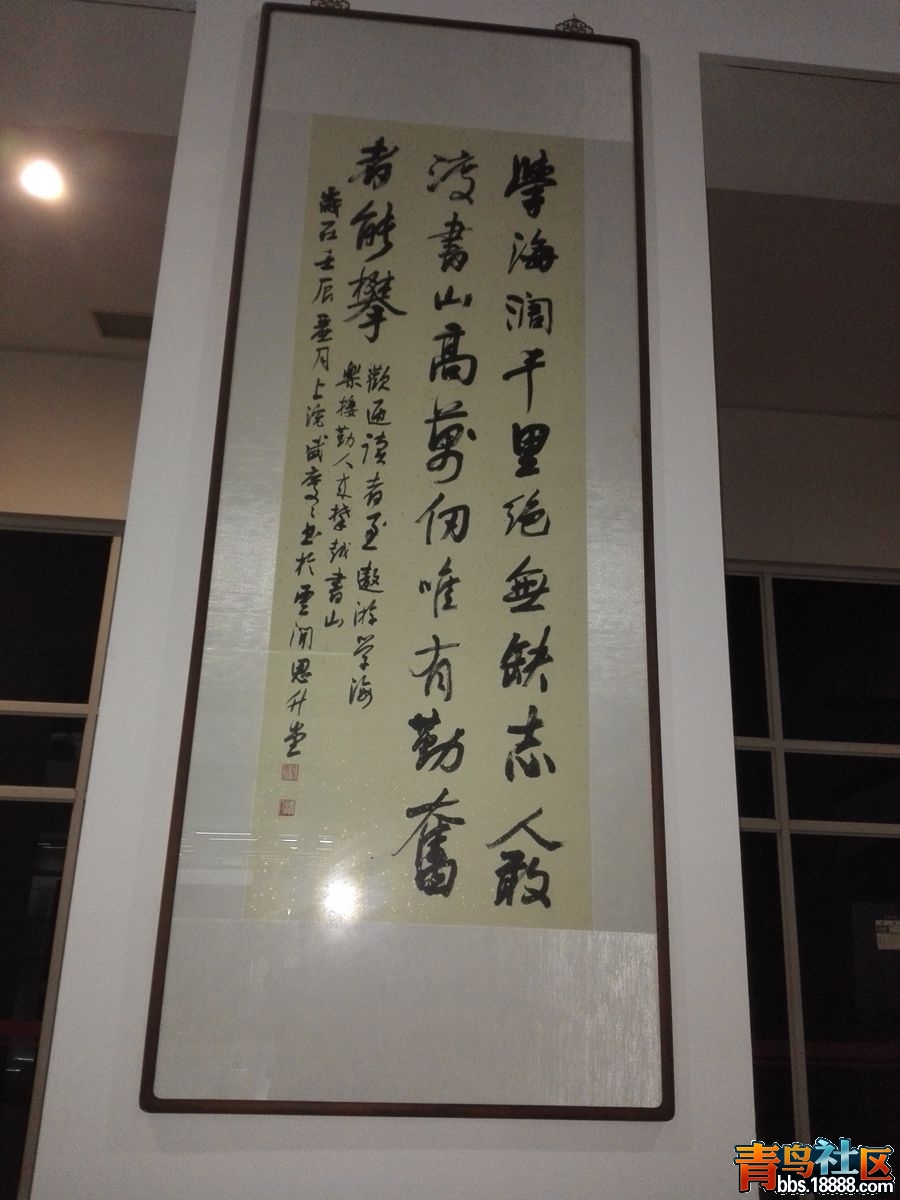 學海阔千里絕無缺志人敢
渡書山高萬仞唯有勤奮
者能攀
歡迎读者至遨游学海
樂接勤人來攀越書山
歲在壬辰 月上浣 書於雲間思升堂
青鸟社区
bbs.18888.com